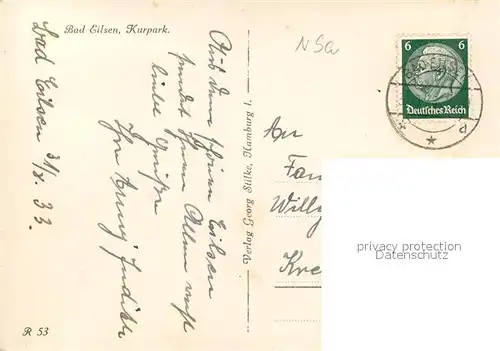 Bad Eilsen, Kurpark.
Bad Eilsen 31/X. 33.
Aus dem schönen Eilsen
sendet Ihnen Allen recht
liebe Grüße
Ihre
R 53
Verlag Georg Stilke, Hamburg 1.
N Sa
6 6
Deutsches Reich
An
Fam
Willy
Kre
privacy protection
Datenschutz